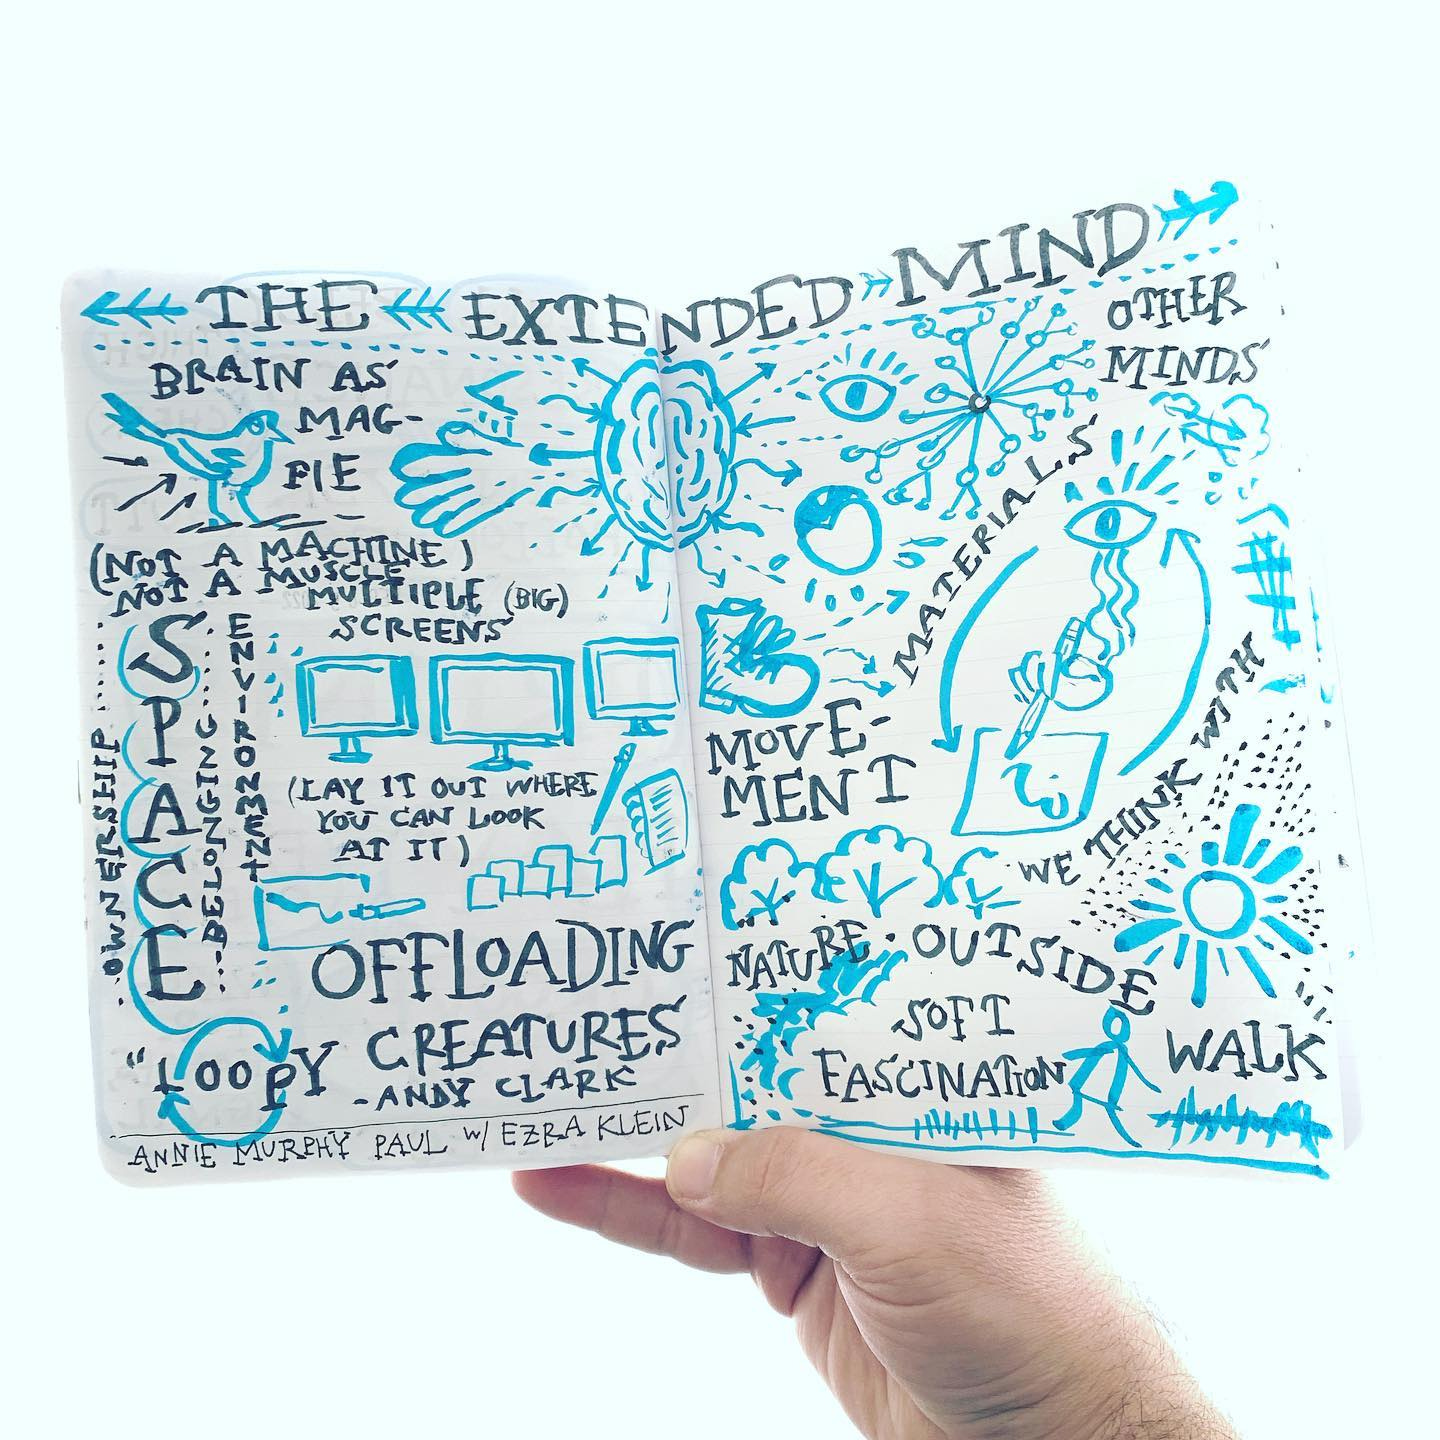 THE EXTENDED MIND
BRAIN AS
MAG-
PIE
(NOT A MACHINE)
NOT A MUSCLE
MULTIPLE (BIG)
SCREENS
SPACE
OWNERSHIP
BELONGING
ENVIRONMENT
(LAY IT OUT WHERE
YOU CAN LOOK
AT IT)
OFFLOADING
"LOOPY
CREATURES
-ANDY CLARK
ANNIE MURPHY PAUL w/ EZRA KLEIN
OTHER
MINDS
MATERIALS
MOVE-
MENT
WE THINK WITH
NATURE · OUTSIDE
SOFT
FASCINATION
WALK